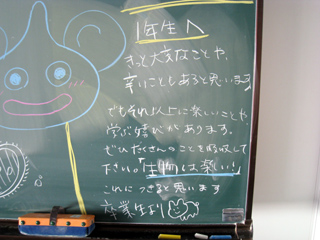 1年生へ
きっと大変なことや、
辛いこともあると思います
でもそれ以上に楽しいことや
学ぶ喜びがあります。
ぜひたくさんのことを吸収して
下さい。「生物は楽しい!」
これにつきると思います
卒業生より